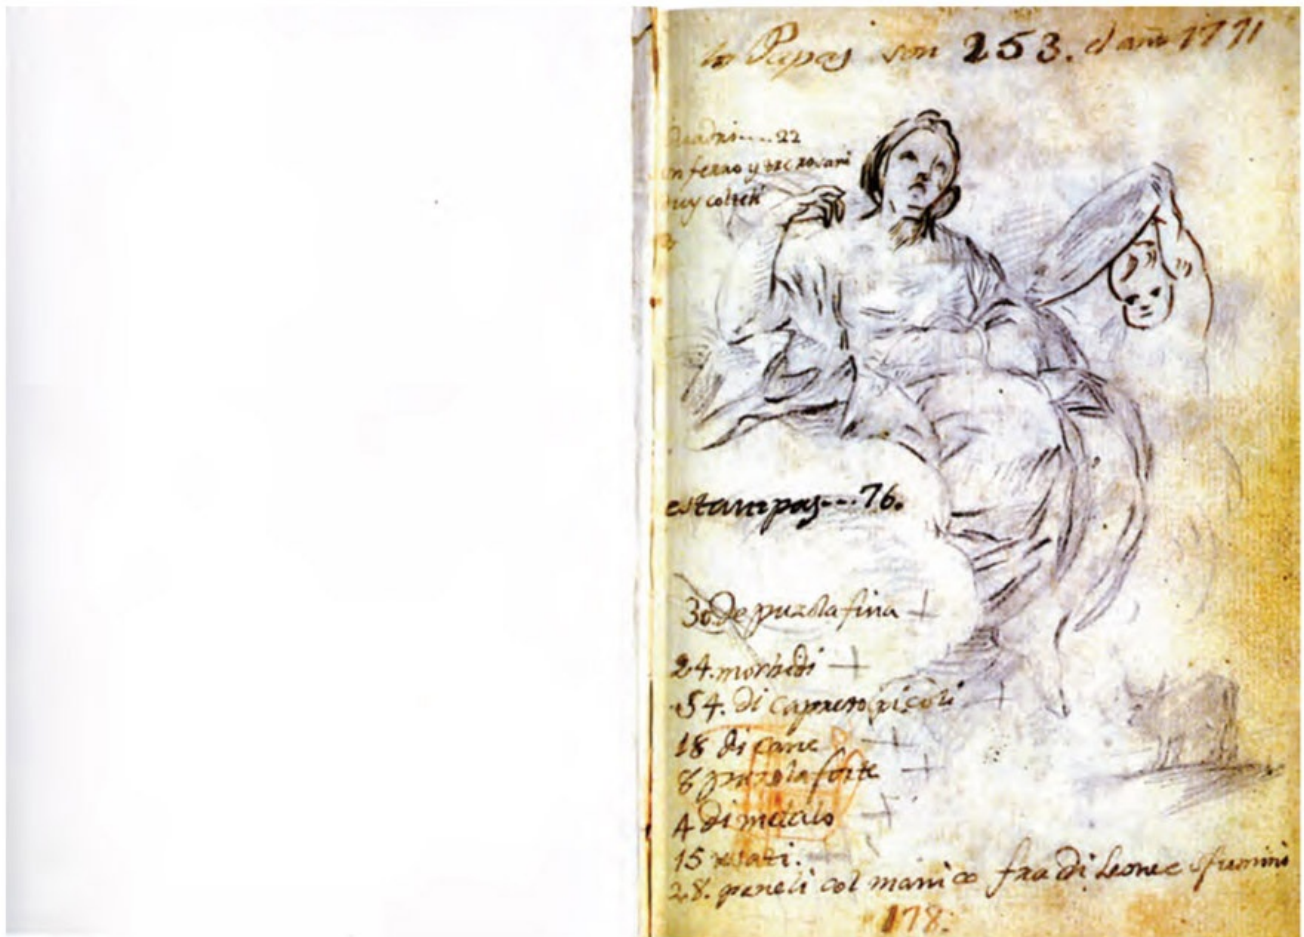 lo Papas son 253. el año 1771
Quadri.... 22
un ferro y tre rosari
muy colteli
estampas---76.
30 de puzola fina +
24. morbidi +
54. di capreto picoli +
18 di cane +
8 puzola forte +
4 di mecalo +
15 usati.
28. paneli col manico fra di Leone e sfumini
178.